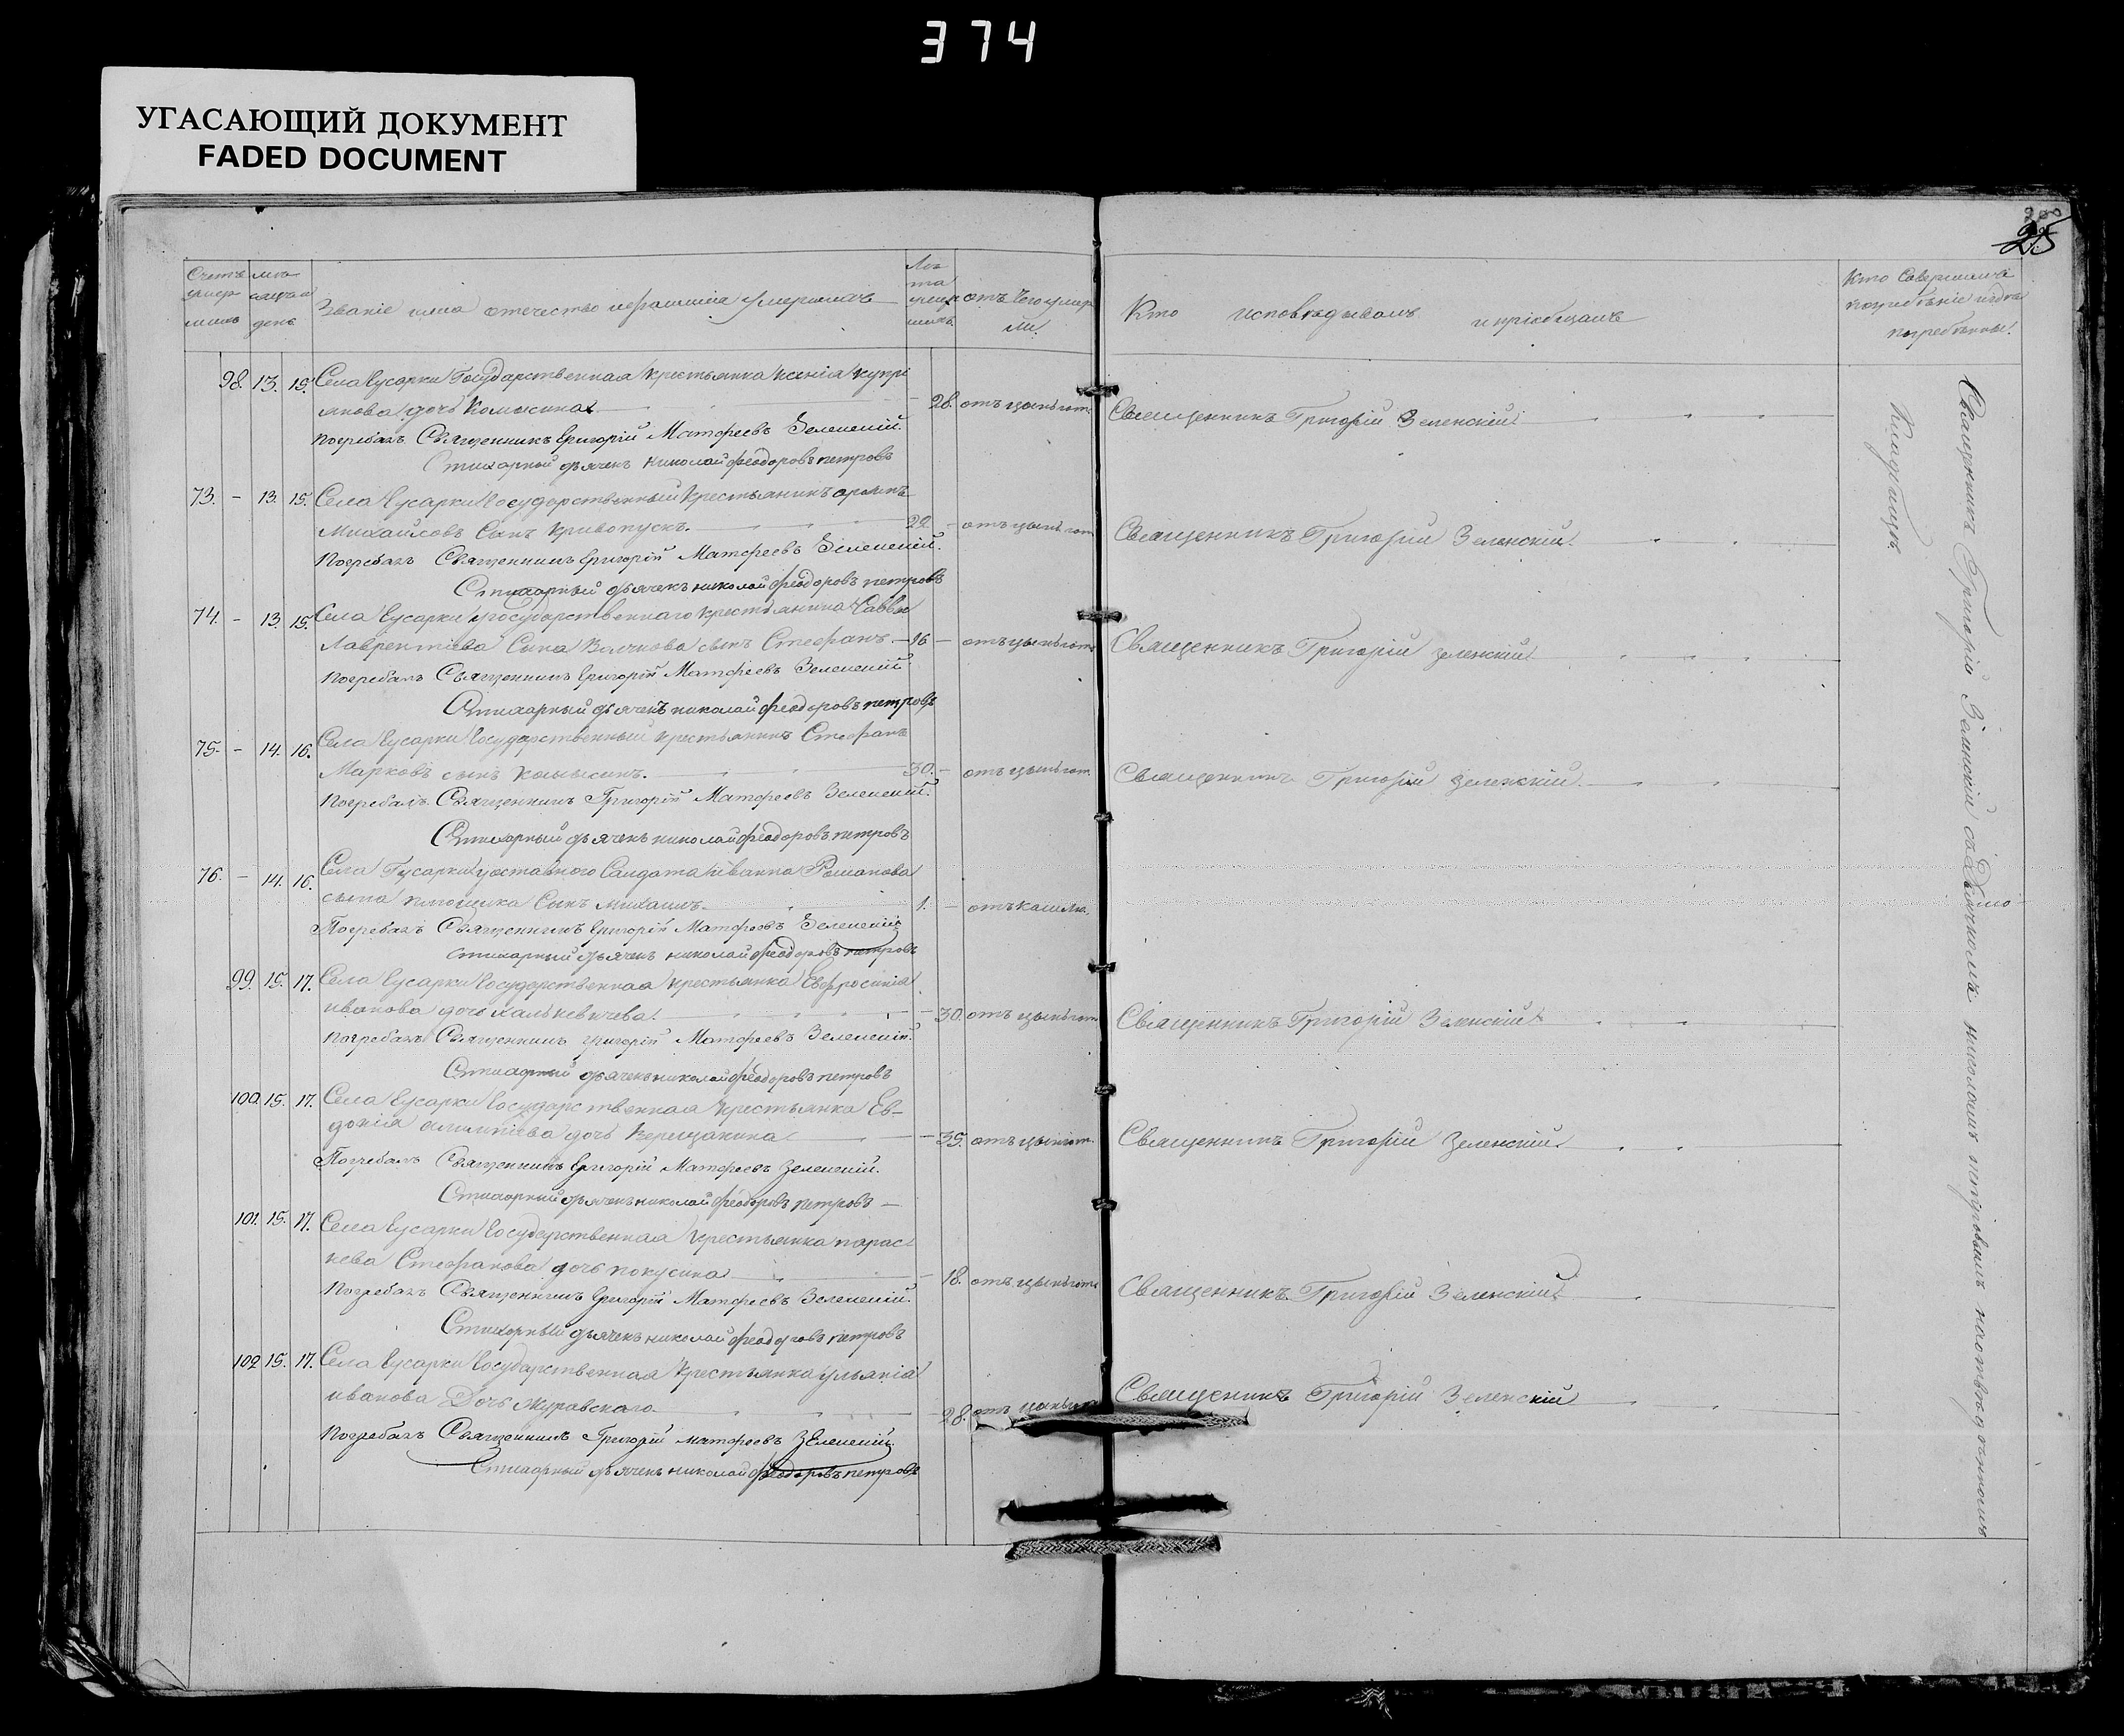 374
УГАСАЮЩИЙ ДОКУМЕНТ
FADED DOCUMENT
25
Счетъ умер шихъ
день
Званіе имя отечество и фамилія умершихъ
Лѣ та умер шихъ
отъ чего умер ли.
Кто исповѣдывалъ и пріобщалъ
Кто совершалъ погребеніе и гдѣ погребены.
98. 13. 15. Села Гусарки Государственная крестьянка Ксенія Купрі
янова дочь 28. отъ цынготи Священникъ Григорій Зеленскій
Погребалъ Священникъ Григорій Матфеевъ Зеленскій.
Стихарный дьячекъ Николай Феодоровъ Петровъ
73. - 13. 15. Села Гусарки Государственный крестьянинъ
Михайловъ Сынъ Кривопускъ. 22. - отъ цынготи Священникъ Григорій Зеленскій
Погребалъ Священникъ Григорій Матфеевъ Зеленскій.
Стихарный дьячекъ Николай Феодоровъ Петровъ
74. - 13. 15. Села Гусарки Государственнаго крестьянина Саввы
Лаврентіева Сына сынъ Стефанъ. 16 - отъ цынготи Священникъ Григорій Зеленскій
Погребалъ Священникъ Григорій Матфеевъ Зеленскій
Стихарный дьячекъ Николай Феодоровъ Петровъ
75. - 14. 16. Села Гусарки Государственный крестьянинъ Стефанъ
Марковъ сынъ 30. - отъ цынготи Священникъ Григорій Зеленскій.
Погребалъ Священникъ Григорій Матфеевъ Зеленскій.
Стихарный дьячекъ Николай Феодоровъ Петровъ
76. - 14. 16. Села Гусарки Салдата Иванна Романова
сына Сынъ Михаилъ. 1. - отъ кашля.
Погребалъ Священникъ Григорій Матфеевъ Зеленскій
стихарный дьячекъ Николай Феодоровъ Петровъ
99. 15. 17. Села Гусарки Государственная крестьянка Евфросинія
Иванова дочь 30. отъ цынготи Священникъ Григорій Зеленскій
Погребалъ Священникъ Григорій Матфеевъ Зеленскій.
Стихарный дьячекъ Николай Феодоровъ Петровъ
100. 15. 17. Села Гусарки Государственная крестьянка Ев-
докія дочь 35. отъ цынготи. Священникъ Григорій Зеленскій
Погребалъ Священникъ Григорій Матфеевъ Зеленскій.
Стихарный дьячекъ Николай Феодоровъ Петровъ —
101. 15. 17. Села Гусарки Государственная крестьянка Парас
кева Стефанова дочь 18. отъ цынготи Священникъ Григорій Зеленскій
Погребалъ Священникъ Григорій Матфеевъ Зеленскій.
Стихарный дьячекъ Николай Феодоровъ Петровъ
102 15. 17. Села Гусарки Государственная крестьянка Ульянія
Иванова Дочь Журавскаго 28. отъ Священникъ Григорій Зеленскій
Погребалъ Священникъ Григорій Матфеевъ Зеленскій.
Стихарный дьячекъ Николай Феодоровъ Петровъ